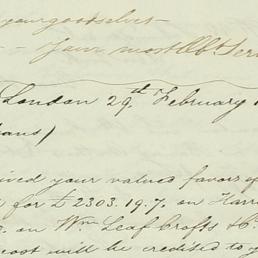 yourgoodselves –
– – Your most Obt Ser
London 29th February 1
ans)
ived your valued favors of
for £2303.19.7. on Harr
on Wm Leaf Crofts & Co.
cost will be credited to y